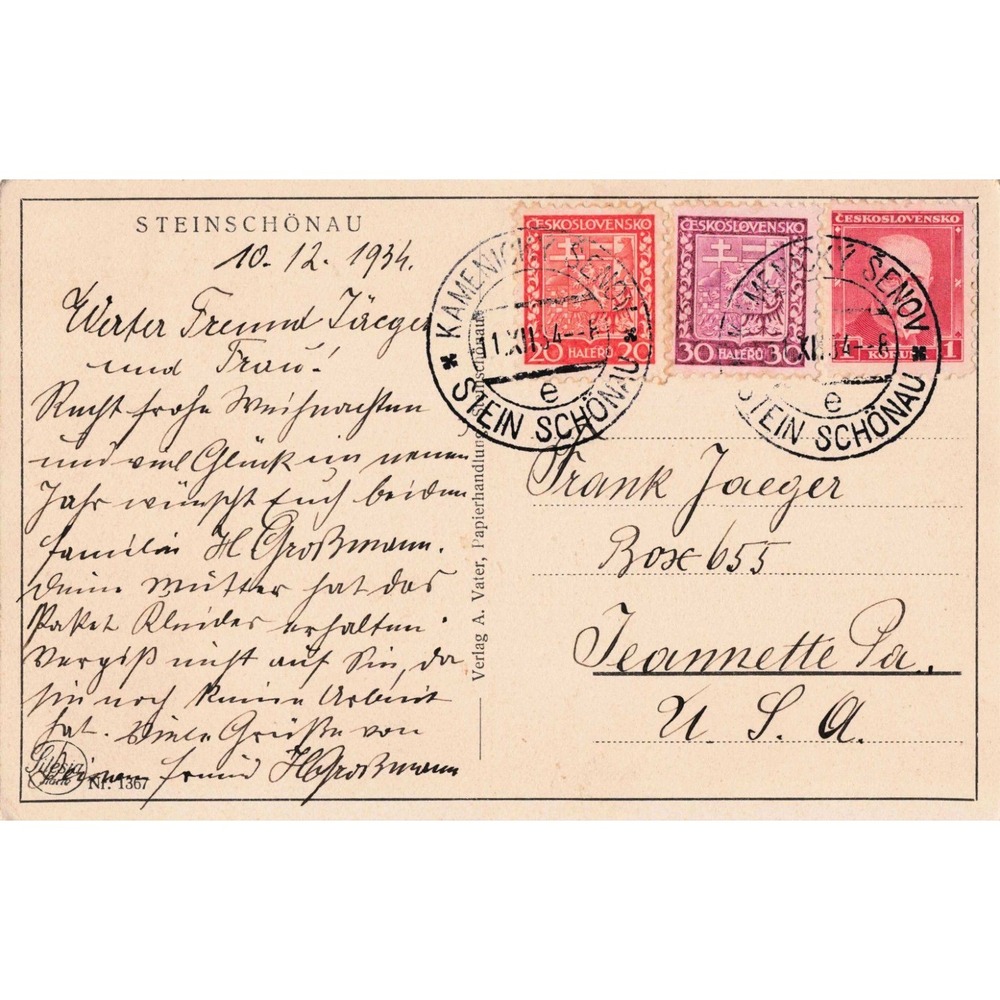 STEINSCHÖNAU
10. 12. 1934.
Werter Freund Jäeger
und Frau!
Recht frohe Weihnachten
und viel Glück im neuen
Jahr wünscht Euch beiden
Familie H Großmann.
Deine Mutter hat das
Paket Kleider erhalten.
Vergiß nicht auf Sie, da
sie noch keine Arbeit
hat. Viele Grüße von
Deinem Freund HGroßmann
Silesia
Nr. 1367
Verlag A. Vater, Papierhandlung, Steinschönau
ČESKOSLOVENSKO
20 HALÉŘŮ 20
ČESKOSLOVENSKO
30 HALÉŘŮ 30
ČESKOSLOVENSKO
KORUNA 1
* KAMENICKÝ ŠENOV *
1.XII.34--8
e
STEIN SCHÖNAU
KAMENICKÝ ŠENOV *
XII.34--8
e
STEIN SCHÖNAU
Frank Jaeger
Box 655
Jeannette Pa.
U. S. A.